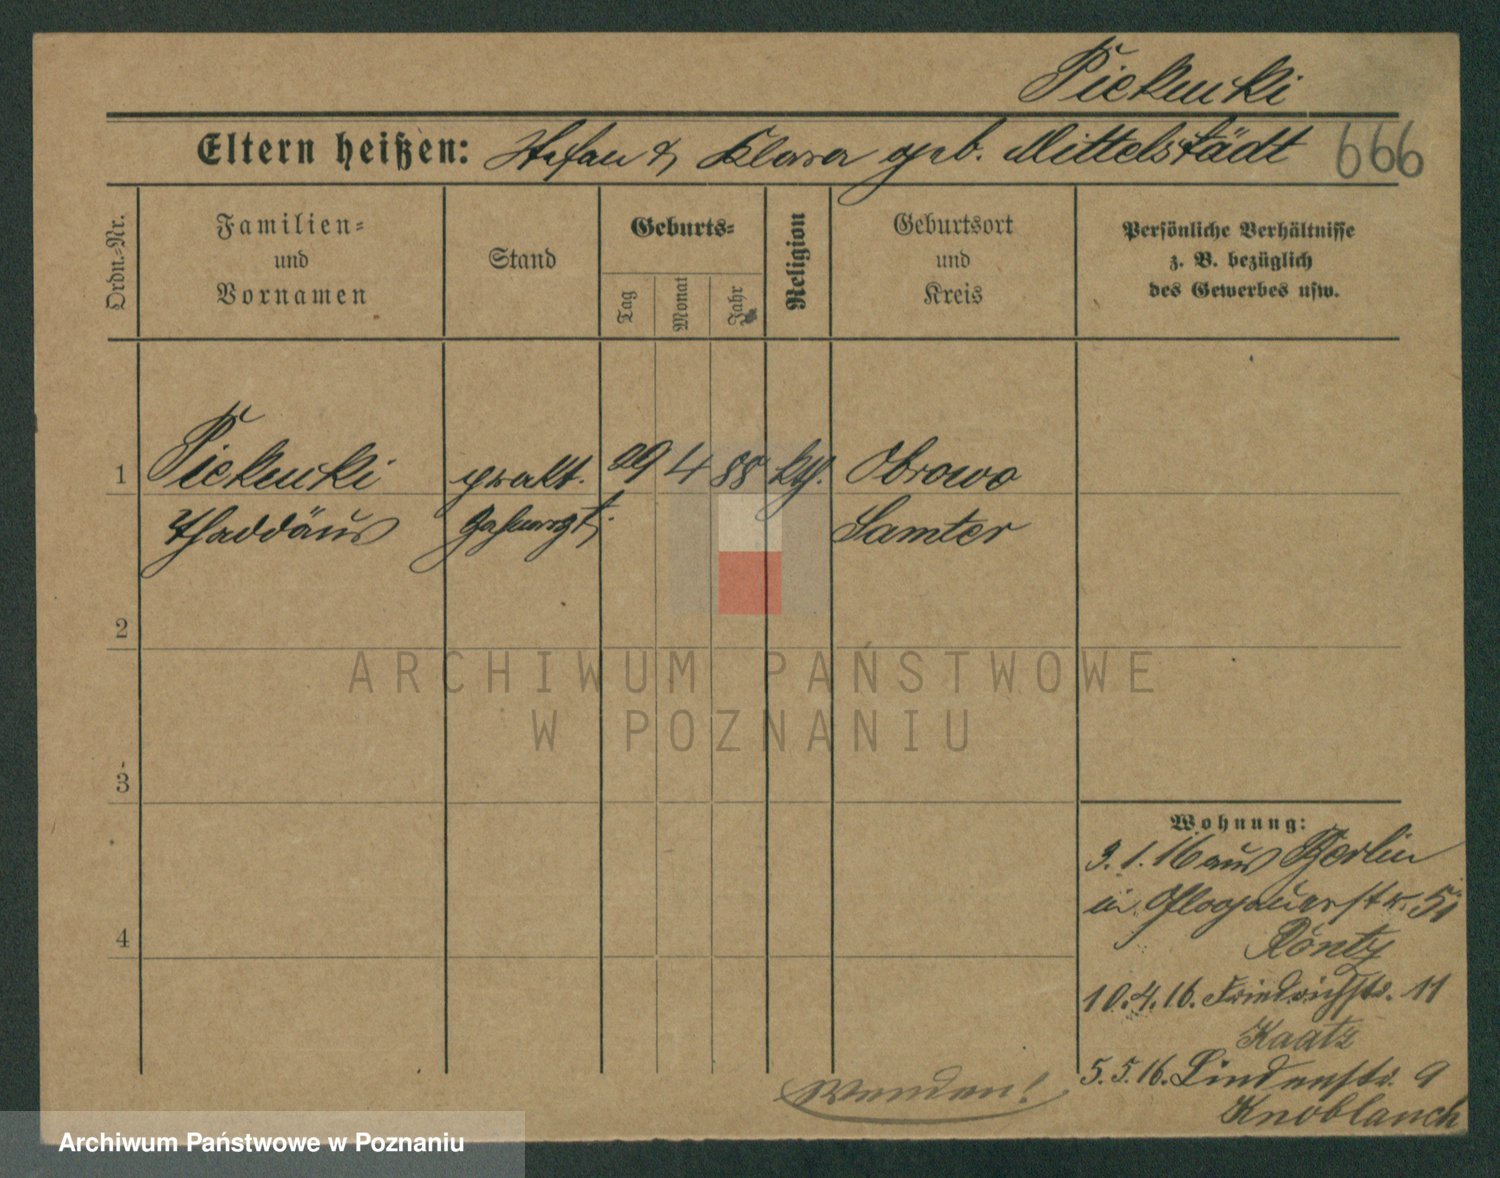 Piekucki
Eltern heißen: Stefan & Klara geb. Mittelstädt 666
Ordn.-Nr.
Familien-
und
Vornamen
Stand
Geburts-
Tag
Monat
Jahr
Religion
Geburtsort
und
Kreis
Persönliche Verhältnisse
z. B. bezüglich
des Gewerbes usw.
1 Piekucki prakt. 29 4 88 kth. Obrowo
Thaddäus Zahnarzt. Samter
2
3
4
Wohnung:
3.1.16 aus Berlin
in Glogauerstr. 51
10.4.16. Friedrichstr. 11
Kaatz
5.5.16. Lindenstr. 9
Knoblauch
Wenden!
ARCHIWUM PAŃSTWOWE
W POZNANIU
Archiwum Państwowe w Poznaniu